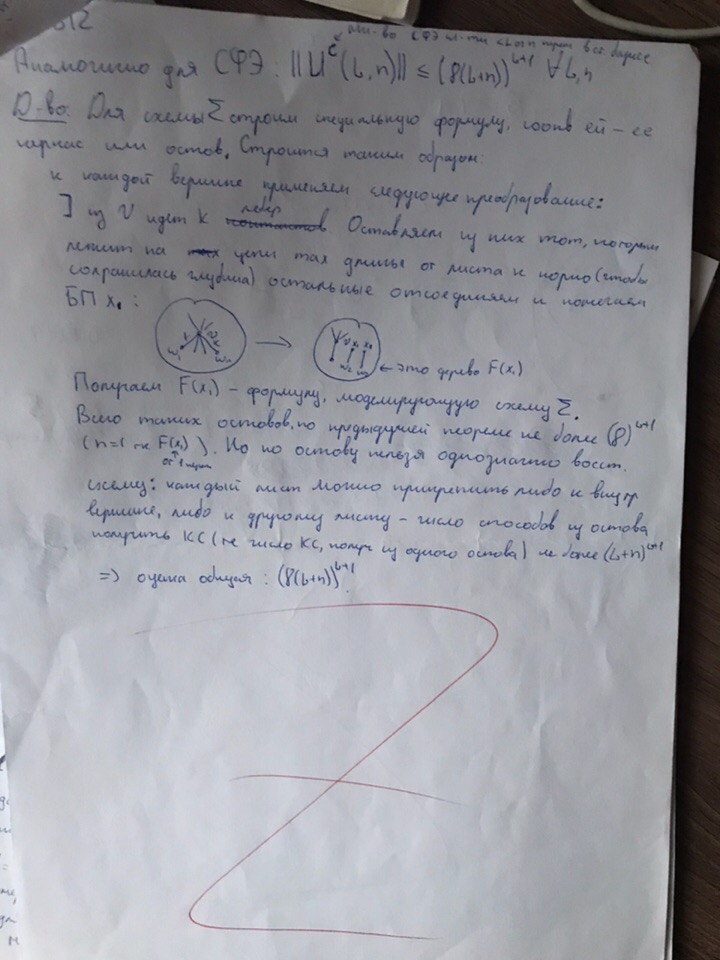 мн-во СФЭ сл-ти ≤ L от n перем в ст. базисе
Аналогично для СФЭ: ||U^C(L,n)|| ≤ (8(L+n))^{L+1} ∀L,n
Д-во: Для схемы Σ строим специальную формулу, соотв ей – ее
каркас или остов. Строится таким образом:
к каждой вершине применяем следующее преобразование:
] из V идет k ребер Оставляем из них тот, который
лежит на цепи max длины от листа к корню (чтобы
сохранилась глубина) остальные отсоединяем и помечаем
БП x₁:
← это дерево F(x₁)
Получаем F(x₁) – формулу, моделирующую схему Σ.
Всего таких остовов, по предыдущей теореме не более (8)^{L+1}
(n=1 тк F(x₁)). Но по остову нельзя однозначно восст.
от 1 перем
схему: каждый лист можно прикрепить либо к внутр
вершине, либо к другому листу – число способов из остова
получить КС (те число КС, получ из одного остова) не более (L+n)^{L+1}
=> оценка общая: (8(L+n))^{L+1}.